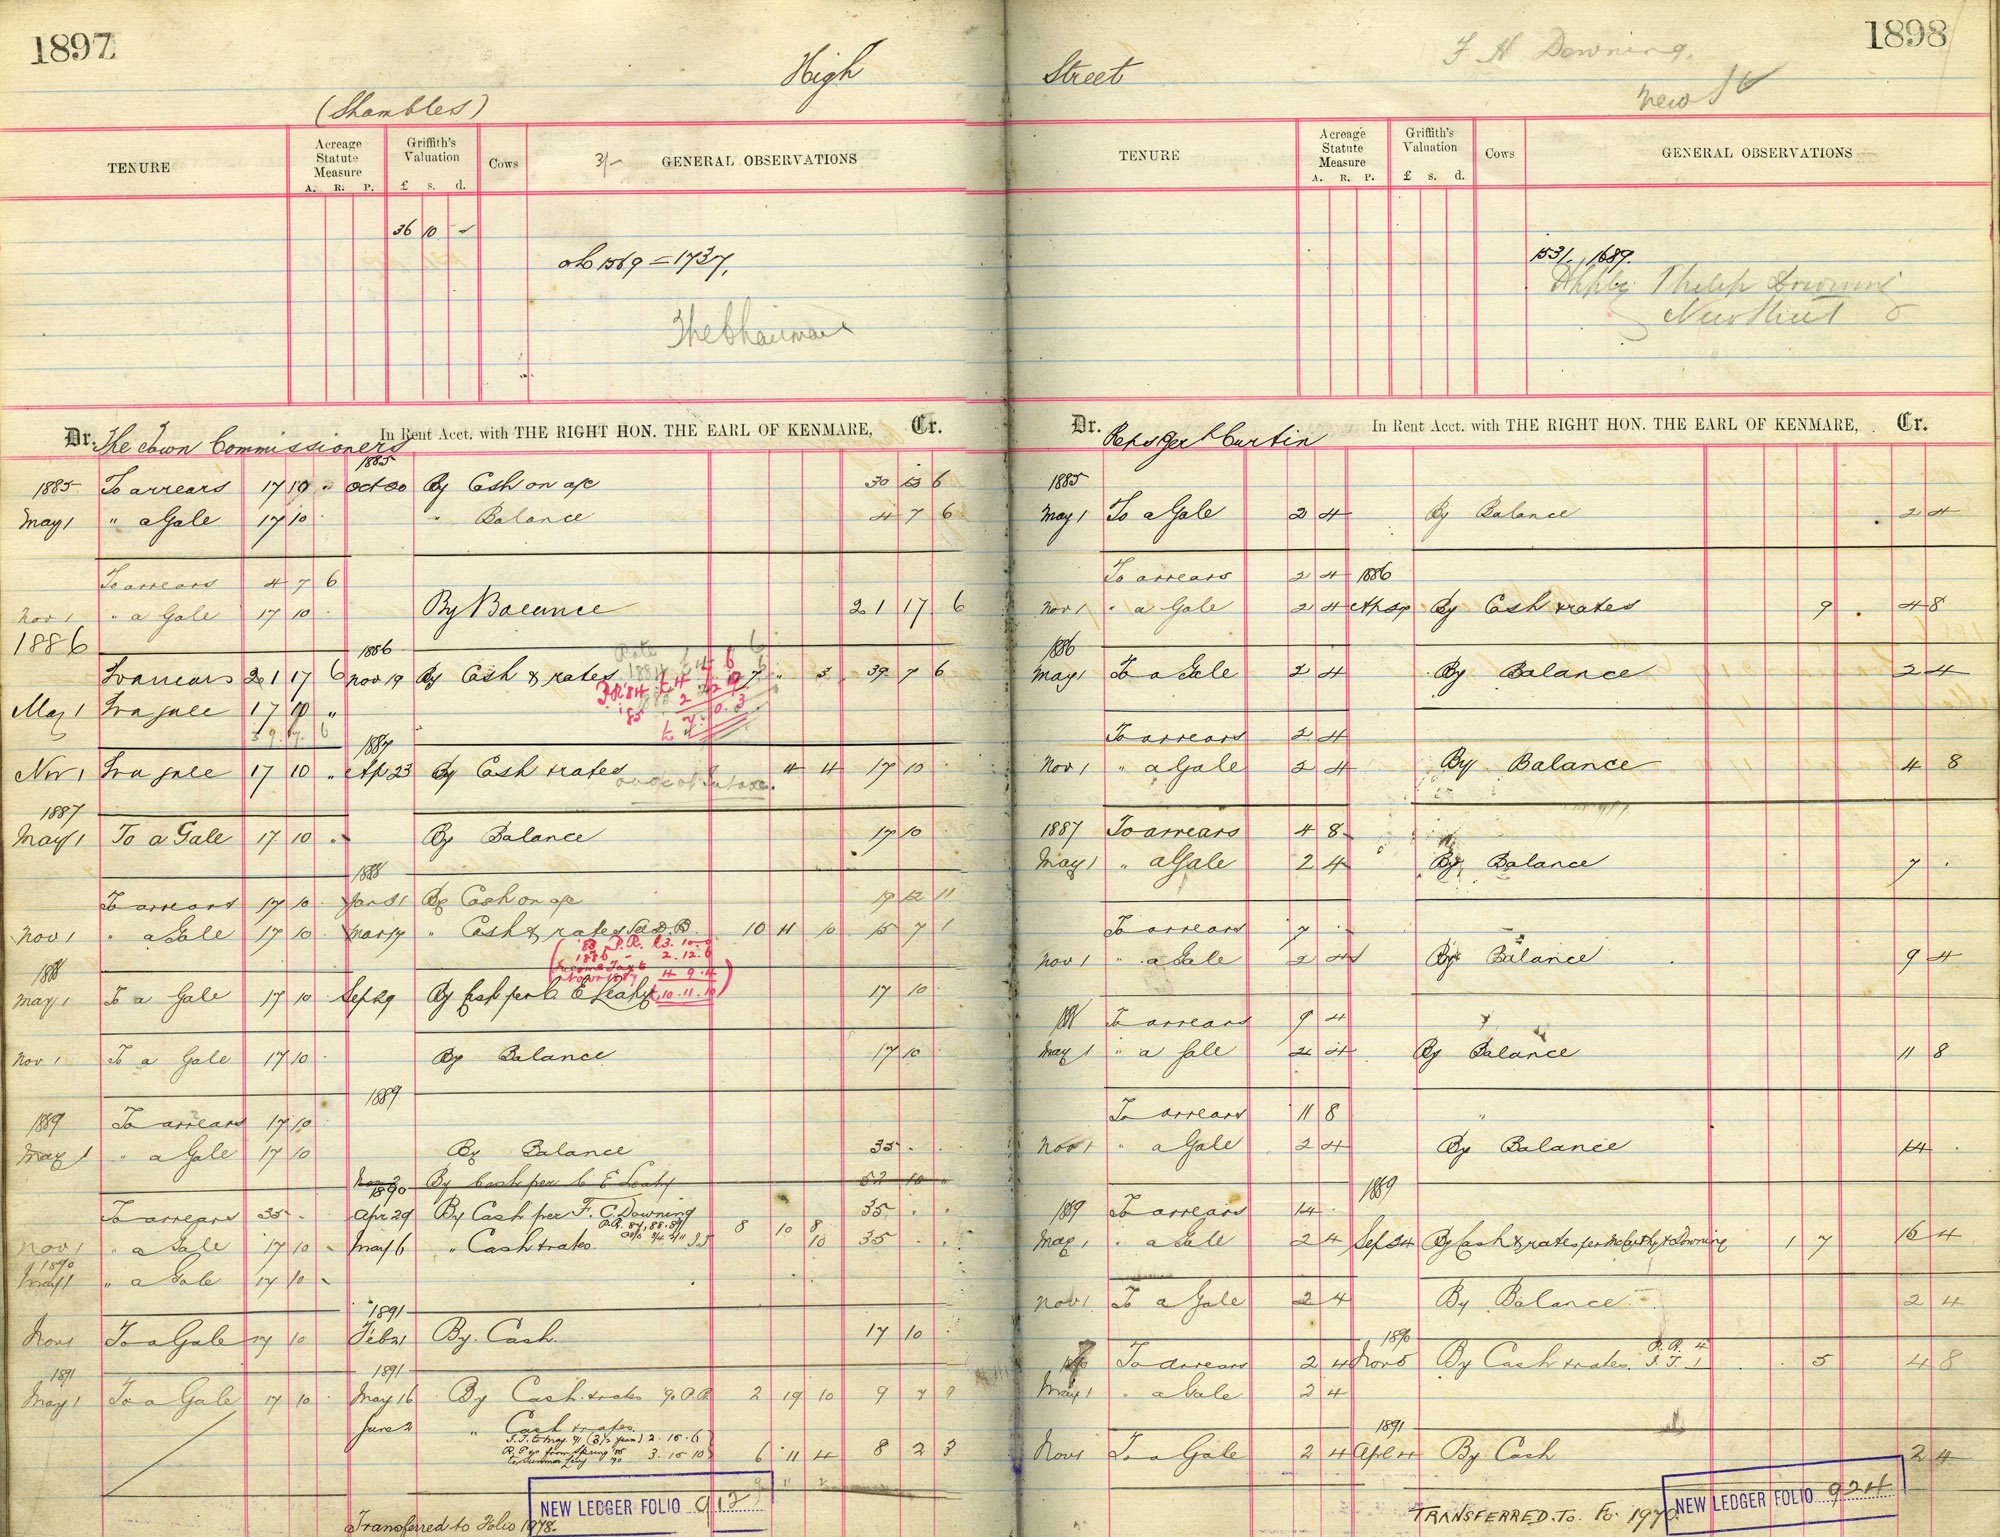 1897
High
(Shambles)
TENURE
Acreage Statute Measure
A. R. P.
Griffith's Valuation
£ s. d.
Cows
3/- GENERAL OBSERVATIONS
36 10 -
1569 = 1737.
The Chairman
Dr. The Town Commissioners In Rent Acct. with THE RIGHT HON. THE EARL OF KENMARE, Cr.
1885
1885 To arrears 17 10 " Oct 20 By Cash on a/c 30 6
May 1 " a Gale 17 10 " Balance 4 7 6
To arrears 4 7 6
Nov 1 " a Gale 17 10 By Balance 21 17 6
1886
1886
To arrears 21 17 6 Nov 19 By Cash & rates 7 " 3 39 7 6
May 1 To a Gale 17 10 "
39 7 6
1887
Nov 1 To a Gale 17 10 " Ap 23 By Cash & rates 4 4 17 10
1887
May 1 To a Gale 17 10 " By Balance 17 10
1888
To arrears 17 10 Jan 31 By Cash on a/c 19 12 11
Nov 1 " a Gale 17 10 Mar 17 " Cash & rates 10 11 10 15 7 1
'85 P.R. £3. 10-0
1886 - 2. 12. 6
Income Tax to
4 9. 4
10. 11. 10
1888
May 1 To a Gale 17 10 Sep 29 By Cash per C E Leahy 17 10
Nov 1 To a Gale 17 10 By Balance 17 10
1889
1889 To arrears 17 10
May 1 " a Gale 17 10 By Balance 35 - .
Nov 2 By Cash per C E Leahy 52 10 "
1890
To arrears 35 - Apr 29 By Cash per F. C. Downing 35 . .
P.R. 87, 88. 89
Nov 1 " a Gale 17 10 - May 6 " Cash & rates. 8 10 8 35 . .
10
1890
May 1 " a Gale 17 10 -
1891
Nov 1 To a Gale 17 10 Feb 21 By Cash. 17 10
1891
1891
May 1 To a Gale 17 10 May 16 By Cash & rates 90 P.R. 2 19 10 9 7 9
June 2 " Cash & rates.
I.T. to May 91 (3½ years) 2. 15. 6
3. 15 10 6 11 4 8 2 3
9 11 2
NEW LEDGER FOLIO 912
Transferred to Folio 1978.
1898
Street
F H Downing.
New St
TENURE
Acreage Statute Measure
A. R. P.
Griffith's Valuation
£ s. d.
Cows
GENERAL OBSERVATIONS
1531, 1689.
Philip Downing
New Street
Dr. Curtin In Rent Acct. with THE RIGHT HON. THE EARL OF KENMARE, Cr.
1885
May 1 To a Gale 2 4 By Balance 2 4
To arrears 2 4 1886
Nov 1 " a Gale 2 4 By Cash & rates 9 . 4 8
1886
May 1 To a Gale 2 4 By Balance 2 4
To arrears 2 4
Nov 1 " a Gale 2 4 By Balance 4 8
1887 To arrears 4 8
May 1 " a Gale 2 4 By Balance 7 .
To arrears 7 .
Nov 1 " a Gale 2 4 By Balance 9 4
1888 To arrears 9 4
May 1 " a Gale 2 4 By Balance 11 8
To arrears 11 8
Nov 1 " a Gale 2 4 By Balance 14
1889
1889 To arrears 14
May 1 " a Gale 2 4 Sep 24 By Cash & rates per Downing 1 7 16 4
Nov 1 To a Gale 2 4 By Balance 2 4
1890
1890 To arrears 2 4 Nov 5 By Cash & rates. P.R. 4 I.T. 1 5 4 8
May 1 " a Gale 2 4
1891
Nov 1 To a Gale 2 4 Apl 4 By Cash 2 4
NEW LEDGER FOLIO 924
TRANSFERRED. To. Fo. 1970